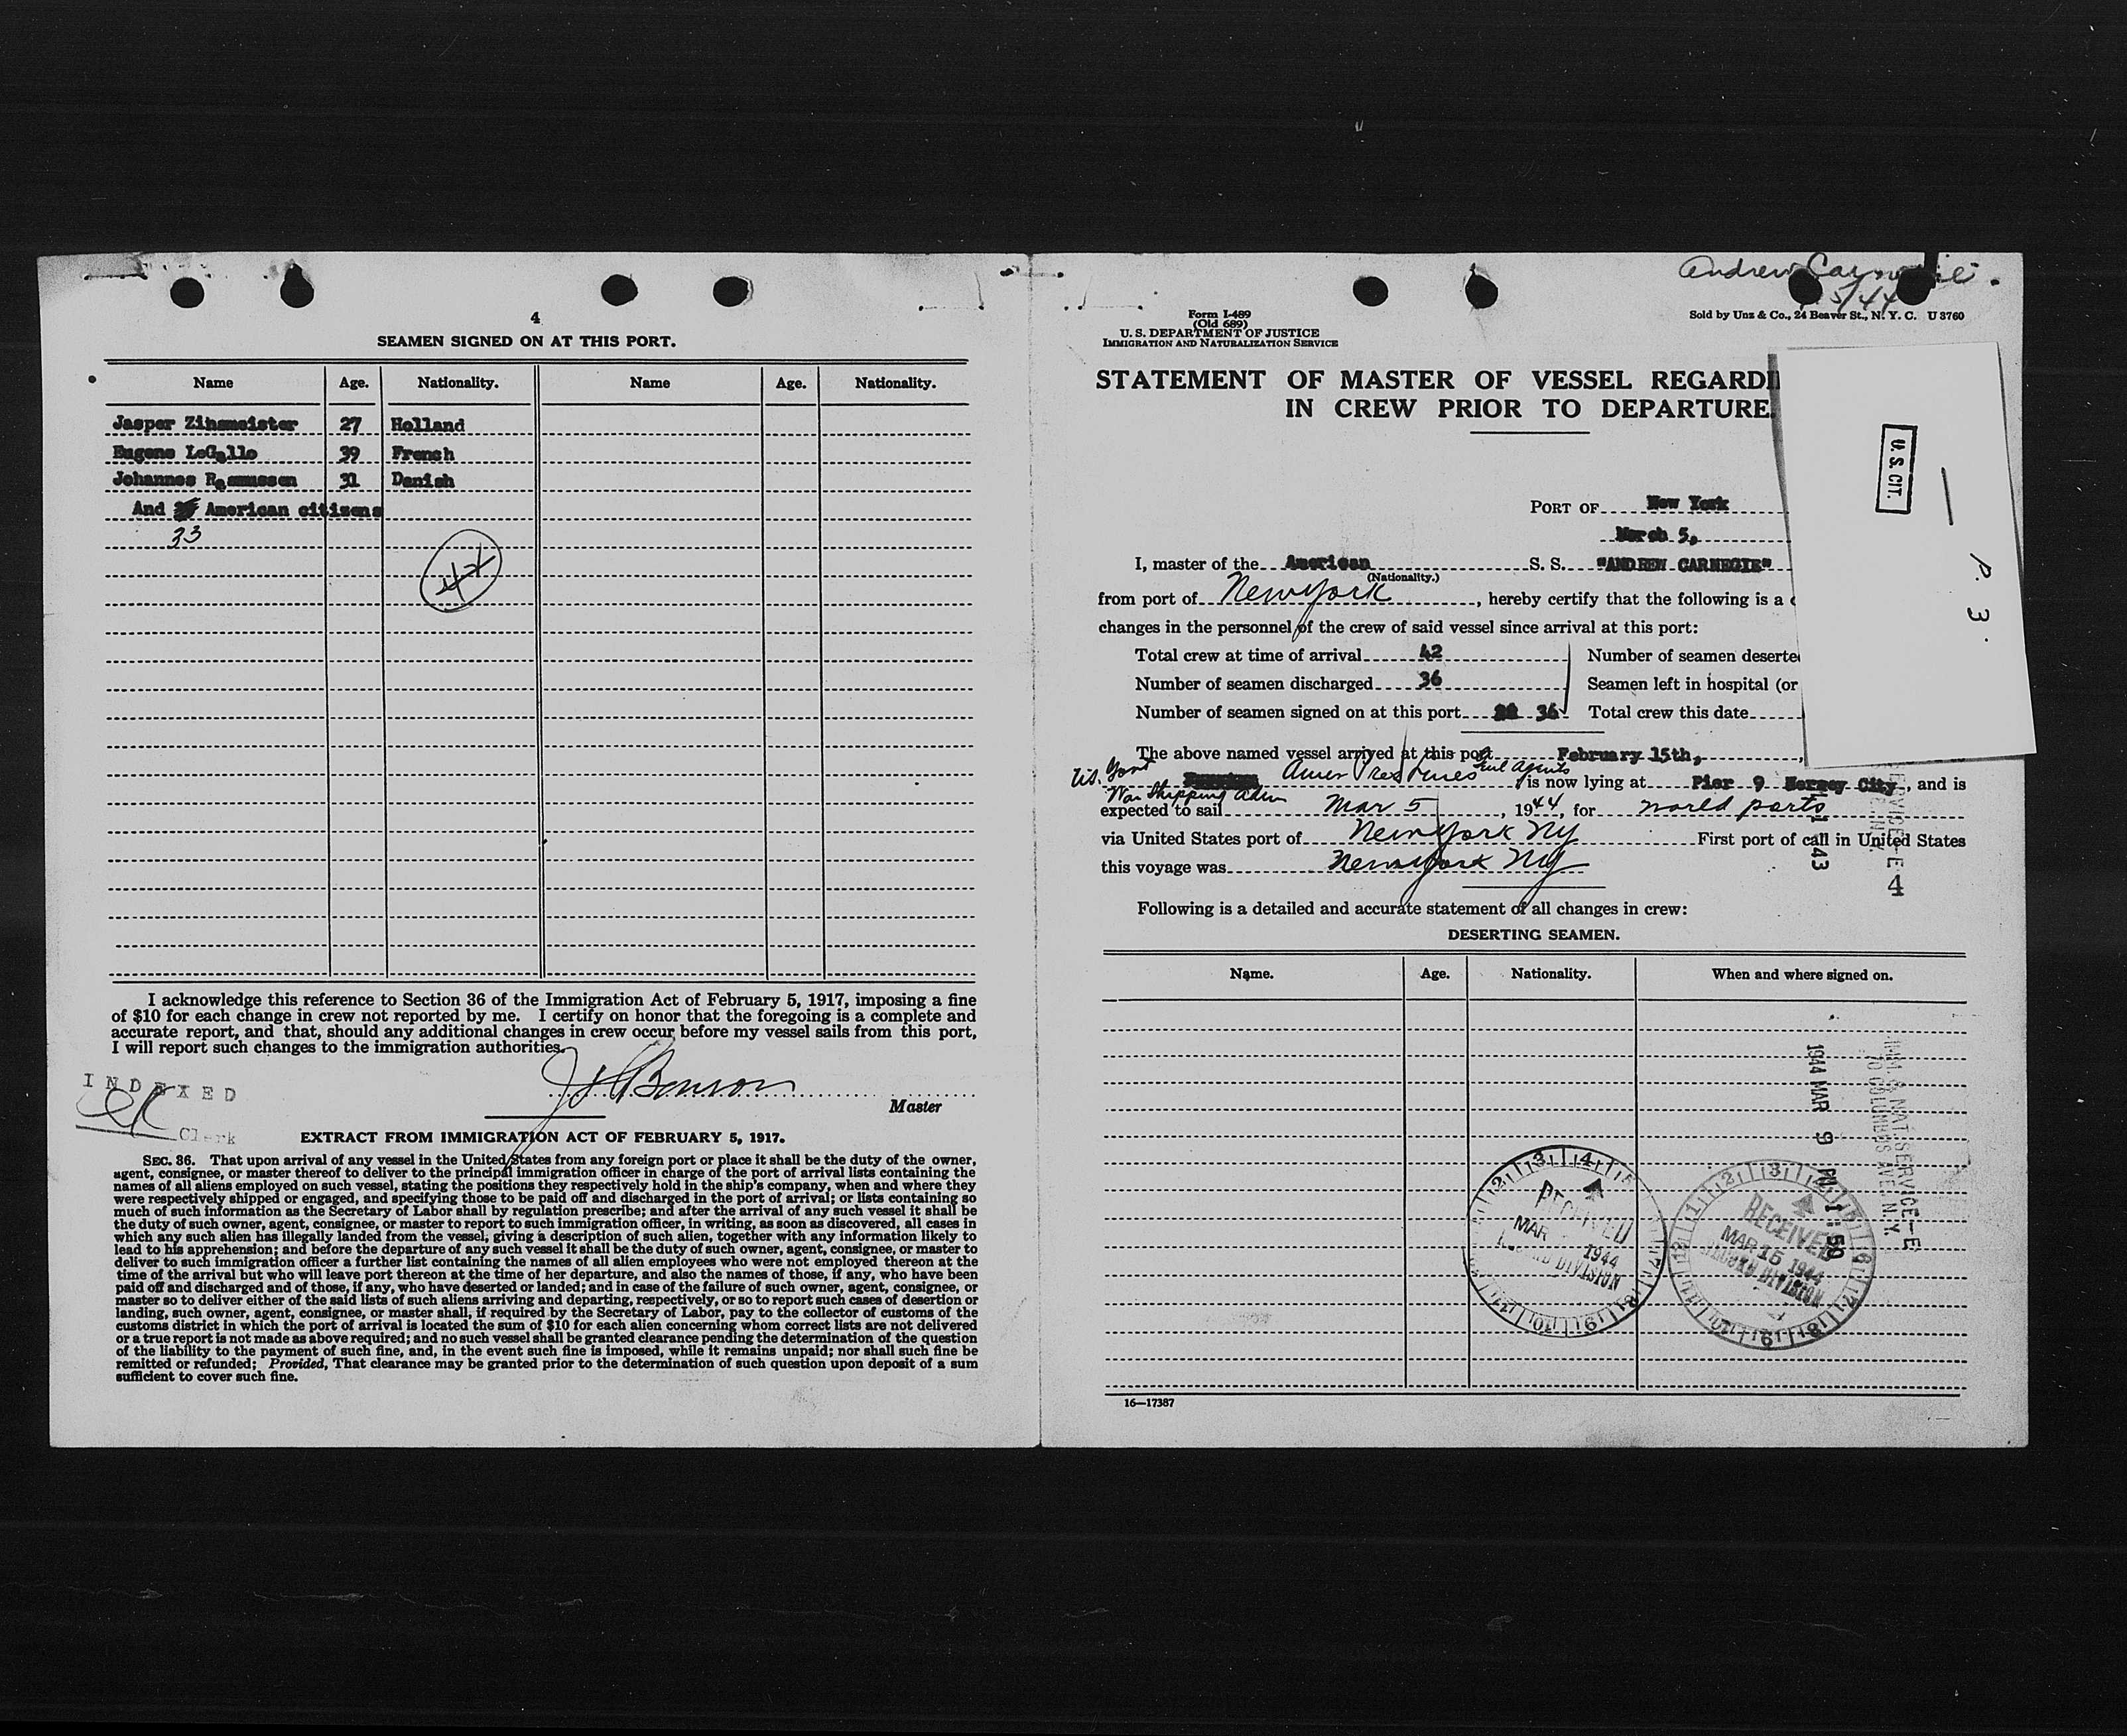 4
SEAMEN SIGNED ON AT THIS PORT.
Name Age. Nationality. Name Age. Nationality.
Jasper Zinsmeister 27 Holland
Eugene LeGallo 39 French
Johannes Rasmussen 31 Danish
And American citizens
33
42
I acknowledge this reference to Section 36 of the Immigration Act of February 5, 1917, imposing a fine
of $10 for each change in crew not reported by me. I certify on honor that the foregoing is a complete and
accurate report, and that, should any additional changes in crew occur before my vessel sails from this port,
I will report such changes to the immigration authorities.
INDEXED
Benson
Master
Clerk
EXTRACT FROM IMMIGRATION ACT OF FEBRUARY 5, 1917.
SEC. 36. That upon arrival of any vessel in the United States from any foreign port or place it shall be the duty of the owner,
agent, consignee, or master thereof to deliver to the principal immigration officer in charge of the port of arrival lists containing the
names of all aliens employed on such vessel, stating the positions they respectively hold in the ship's company, when and where they
were respectively shipped or engaged, and specifying those to be paid off and discharged in the port of arrival; or lists containing so
much of such information as the Secretary of Labor shall by regulation prescribe; and after the arrival of any such vessel it shall be
the duty of such owner, agent, consignee, or master to report to such immigration officer, in writing, as soon as discovered, all cases in
which any such alien has illegally landed from the vessel, giving a description of such alien, together with any information likely to
lead to his apprehension; and before the departure of any such vessel it shall be the duty of such owner, agent, consignee, or master to
deliver to such immigration officer a further list containing the names of all alien employees who were not employed thereon at the
time of the arrival but who will leave port thereon at the time of her departure, and also the names of those, if any, who have been
paid off and discharged and of those, if any, who have deserted or landed; and in case of the failure of such owner, agent, consignee, or
master so to deliver either of the said lists of such aliens arriving and departing, respectively, or so to report such cases of desertion or
landing, such owner, agent, consignee, or master shall, if required by the Secretary of Labor, pay to the collector of customs of the
customs district in which the port of arrival is located the sum of $10 for each alien concerning whom correct lists are not delivered
or a true report is not made as above required; and no such vessel shall be granted clearance pending the determination of the question
of the liability to the payment of such fine, and, in the event such fine is imposed, while it remains unpaid; nor shall such fine be
remitted or refunded; Provided, That clearance may be granted prior to the determination of such question upon deposit of a sum
sufficient to cover such fine.
Andrew Carnegie
5/44
Form I-489
(Old 689)
U. S. DEPARTMENT OF JUSTICE
IMMIGRATION AND NATURALIZATION SERVICE
Sold by Unz & Co., 24 Beaver St., N. Y. C. U 3760
STATEMENT OF MASTER OF VESSEL REGARDI
IN CREW PRIOR TO DEPARTURE
U. S. CIT.
P. 3.
PORT OF New York
March 5,
I, master of the American S. S. "ANDREW CARNEGIE"
(Nationality.)
from port of New York, hereby certify that the following is a c
changes in the personnel of the crew of said vessel since arrival at this port:
Total crew at time of arrival 42 Number of seamen deserte
Number of seamen discharged 36 Seamen left in hospital (or
Number of seamen signed on at this port 36 Total crew this date
The above named vessel arrived at this port February 15th,
U.S. Govt Amer Pres Lines Genl Agents is now lying at Pier 9 Jersey City, and is
War Shipping Adm
expected to sail Mar 5, 1944, for world ports
via United States port of New York NY First port of call in United States
this voyage was New York NY
Following is a detailed and accurate statement of all changes in crew:
DESERTING SEAMEN.
Name. Age. Nationality. When and where signed on.
SERVICE-E
43
4
IMM. & NAT. SERVICE-E
70 COLUMBUS AVE. N.Y.
1944 MAR 9 PM 1:50
RECEIVED
MAR 1944
RECORD DIVISION
RECEIVED
MAR 15 1944
RECORD DIVISION
16—17387